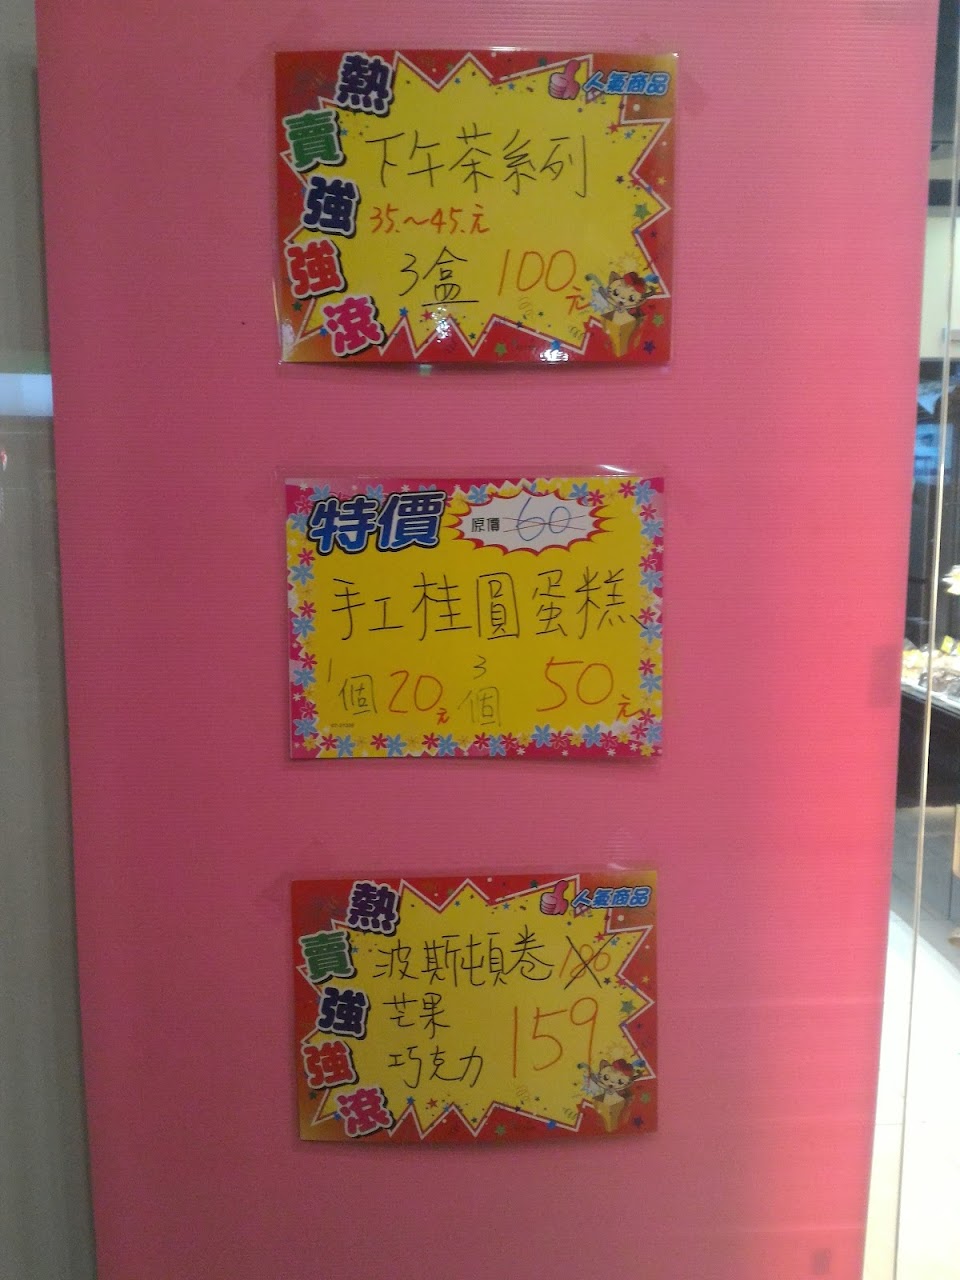 熱賣強強滾
人氣商品
下午茶系列
35.~45.元
3盒 100元
特價
原價 60
手工桂圓蛋糕
1個 20元 3個 50元
熱賣強強滾
人氣商品
波斯頓卷
芒果
巧克力
159